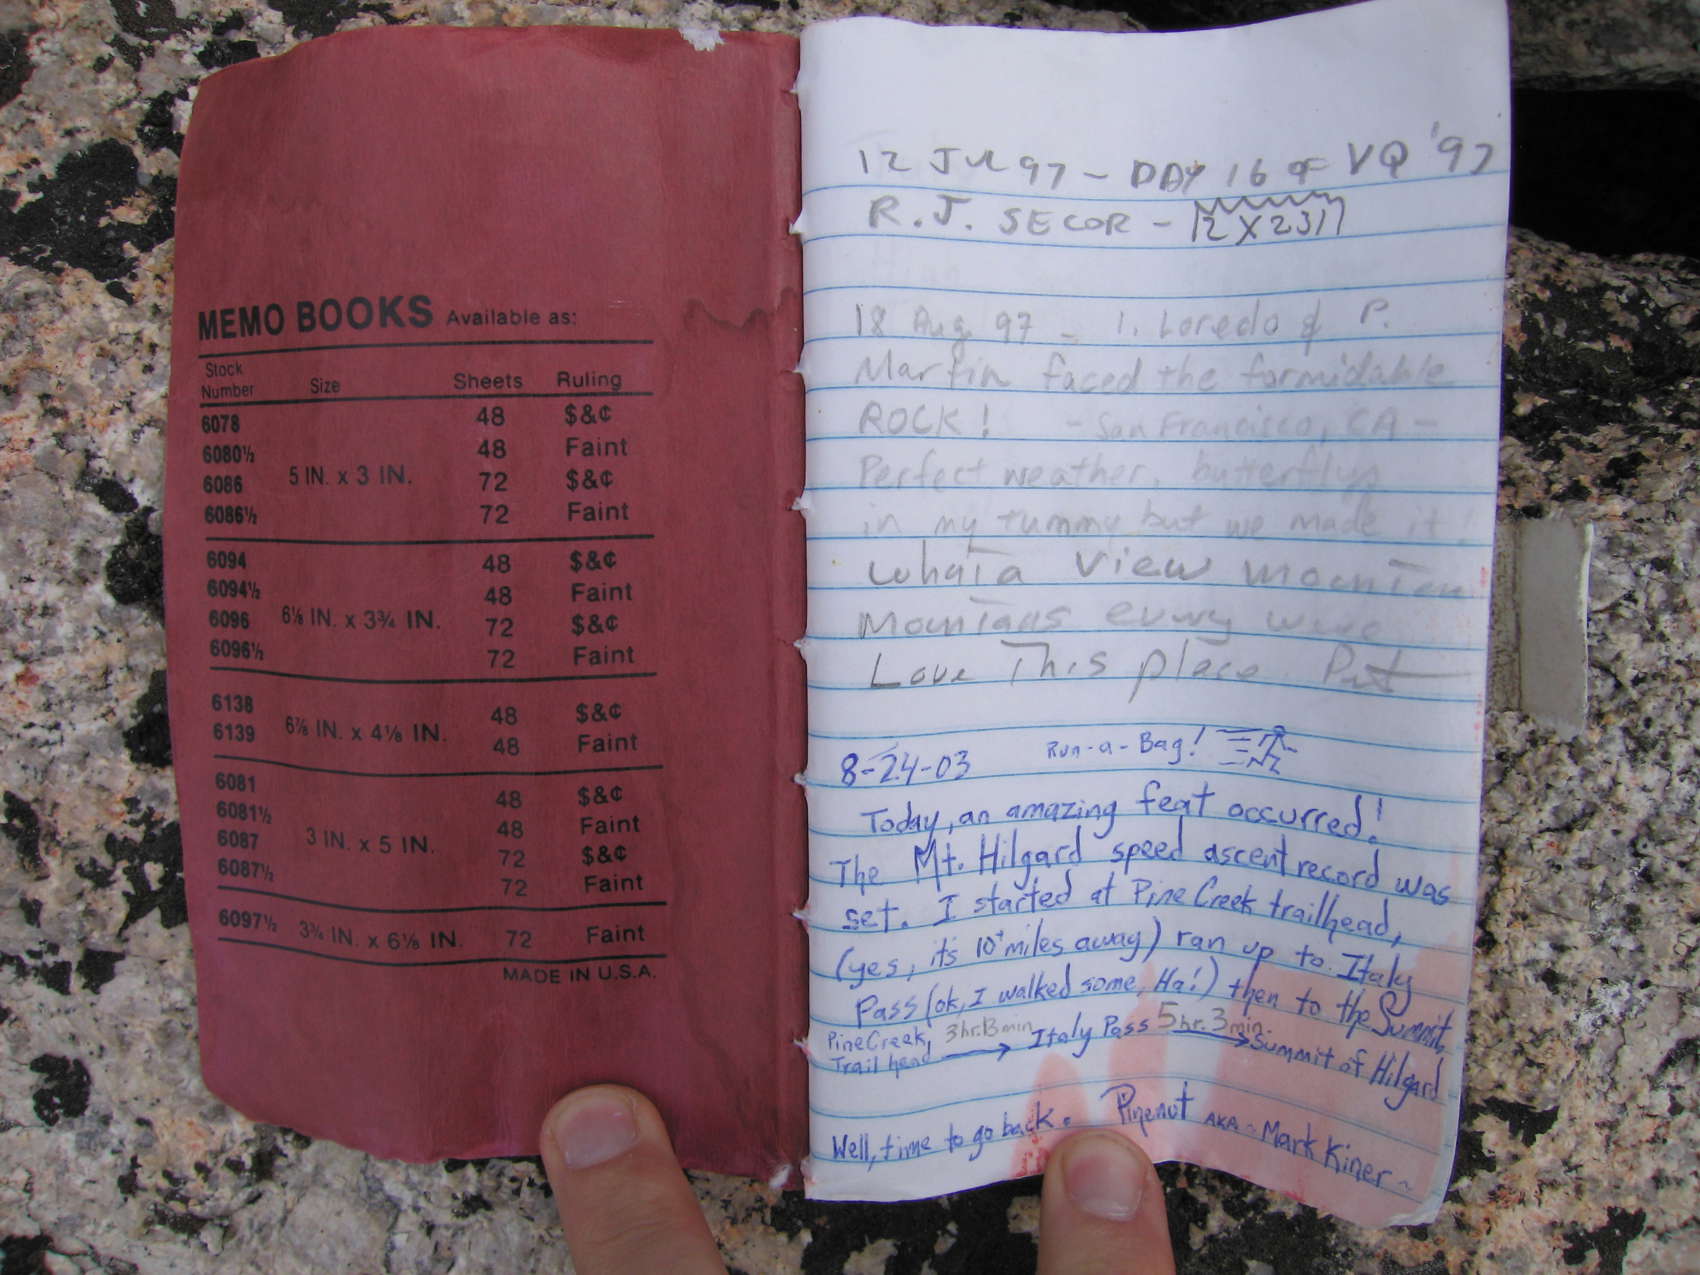 MEMO BOOKS Available as:
Stock Number Size Sheets Ruling
6078 48 $&¢
6080½ 48 Faint
5 IN. x 3 IN.
6086 72 $&¢
6086½ 72 Faint
6094 48 $&¢
6094½ 48 Faint
6⅛ IN. x 3¾ IN.
6096 72 $&¢
6096½ 72 Faint
6138 48 $&¢
6⅞ IN. x 4⅛ IN.
6139 48 Faint
6081 48 $&¢
6081½ 48 Faint
3 IN. x 5 IN.
6087 72 $&¢
6087½ 72 Faint
6097½ 3¾ IN. x 6⅛ IN. 72 Faint
MADE IN U.S.A.
12 JUL 97 - DAY 16 OF VQ '97
R.J. SECOR - 12X231
18 Aug 97 - I. Loredo & P.
Martin faced the formidable
ROCK! - San Francisco, CA -
Perfect weather, butterflys
in my tummy but we made it!
what a view mountan
Mountans evury were
Love This place Pet
8-24-03 Run-a-Bag!
Today, an amazing feat occurred!
The Mt. Hilgard speed ascent record was
set. I started at Pine Creek trailhead,
(yes, it's 10+ miles away) ran up to Italy
Pass (ok, I walked some, Ha!) then to the Summit.
Pine Creek Trail head 3hr. 13min. Italy Pass 5hr. 3min. Summit of Hilgard
Well, time to go back. Pinenut AKA - Mark Kiner ~